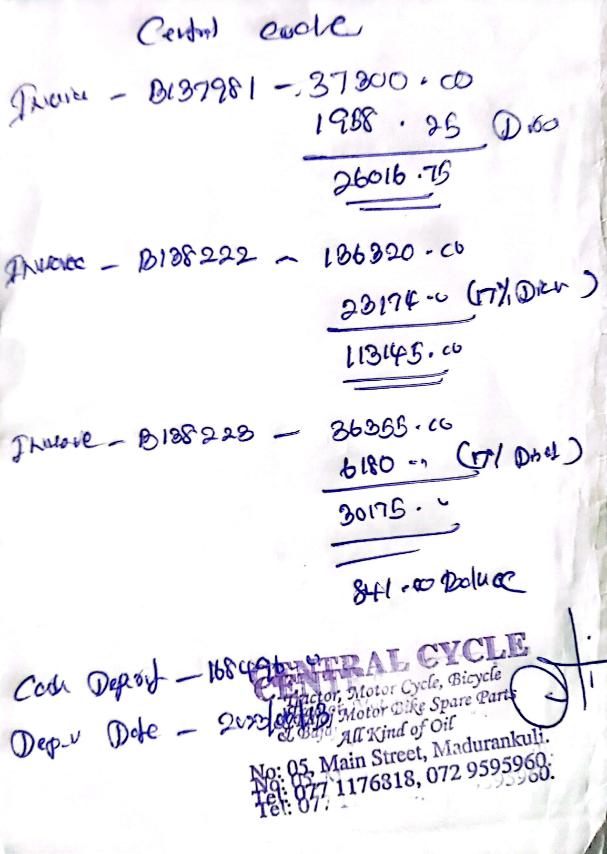 Central cycle
Invoice - B137981 - 37300.00
1958.25 Diso
26016.75
Invoice - B138222 - 136320.00
23174 (17% Disn)
113145.00
Invoice - B138223 - 36355.00
6180 (17% Disn)
30175.
841.00 Balance
Cash Deposit - 168496
Date -
CENTRAL CYCLE
Tractor, Motor Cycle, Bicycle
& Bajaj Motor Bike Spare Parts
All Kind of Oil
No: 05, Main Street, Madurankuli.
Tel: 077 1176818, 072 9595960.